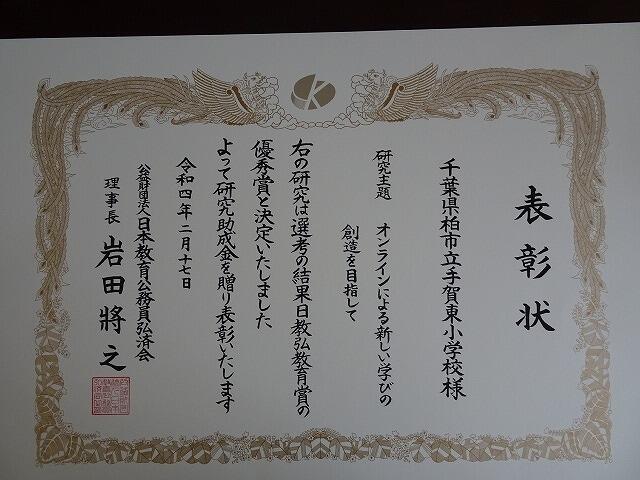 表彰状
千葉県柏市立手賀東小学校様
研究主題 オンラインによる新しい学びの
創造を目指して
右の研究は選考の結果日教弘教育賞の
優秀賞と決定いたしました
よって研究助成金を贈り表彰いたします
令和四年二月十七日
公益財団法人日本教育公務員弘済会
理事長 岩田將之